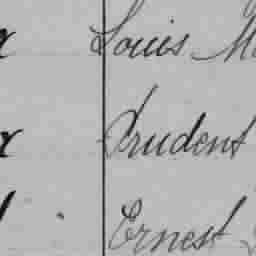 x Louis
x Prudent
Ernest